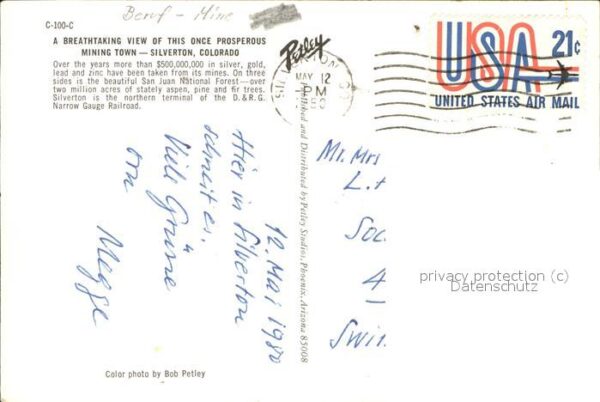 Beruf - Mine
C-100-C
A BREATHTAKING VIEW OF THIS ONCE PROSPEROUS
MINING TOWN — SILVERTON, COLORADO
Over the years more than $500,000,000 in silver, gold,
lead and zinc have been taken from its mines. On three
sides is the beautiful San Juan National Forest — over
two million acres of stately aspen, pine and fir trees.
Silverton is the northern terminal of the D. & R. G.
Narrow Gauge Railroad.
Petley
MAY 12
PM
USA 21c
UNITED STATES AIR MAIL
Published and Distributed by Petley Studios, Phoenix, Arizona 85008
12. Mai 1980
Hier in Silverton
schneit es.
Viele Grüsse
Mr. Mrs
L. +
Soc.
4
Swi
privacy protection (c)
Datenschutz
Color photo by Bob Petley